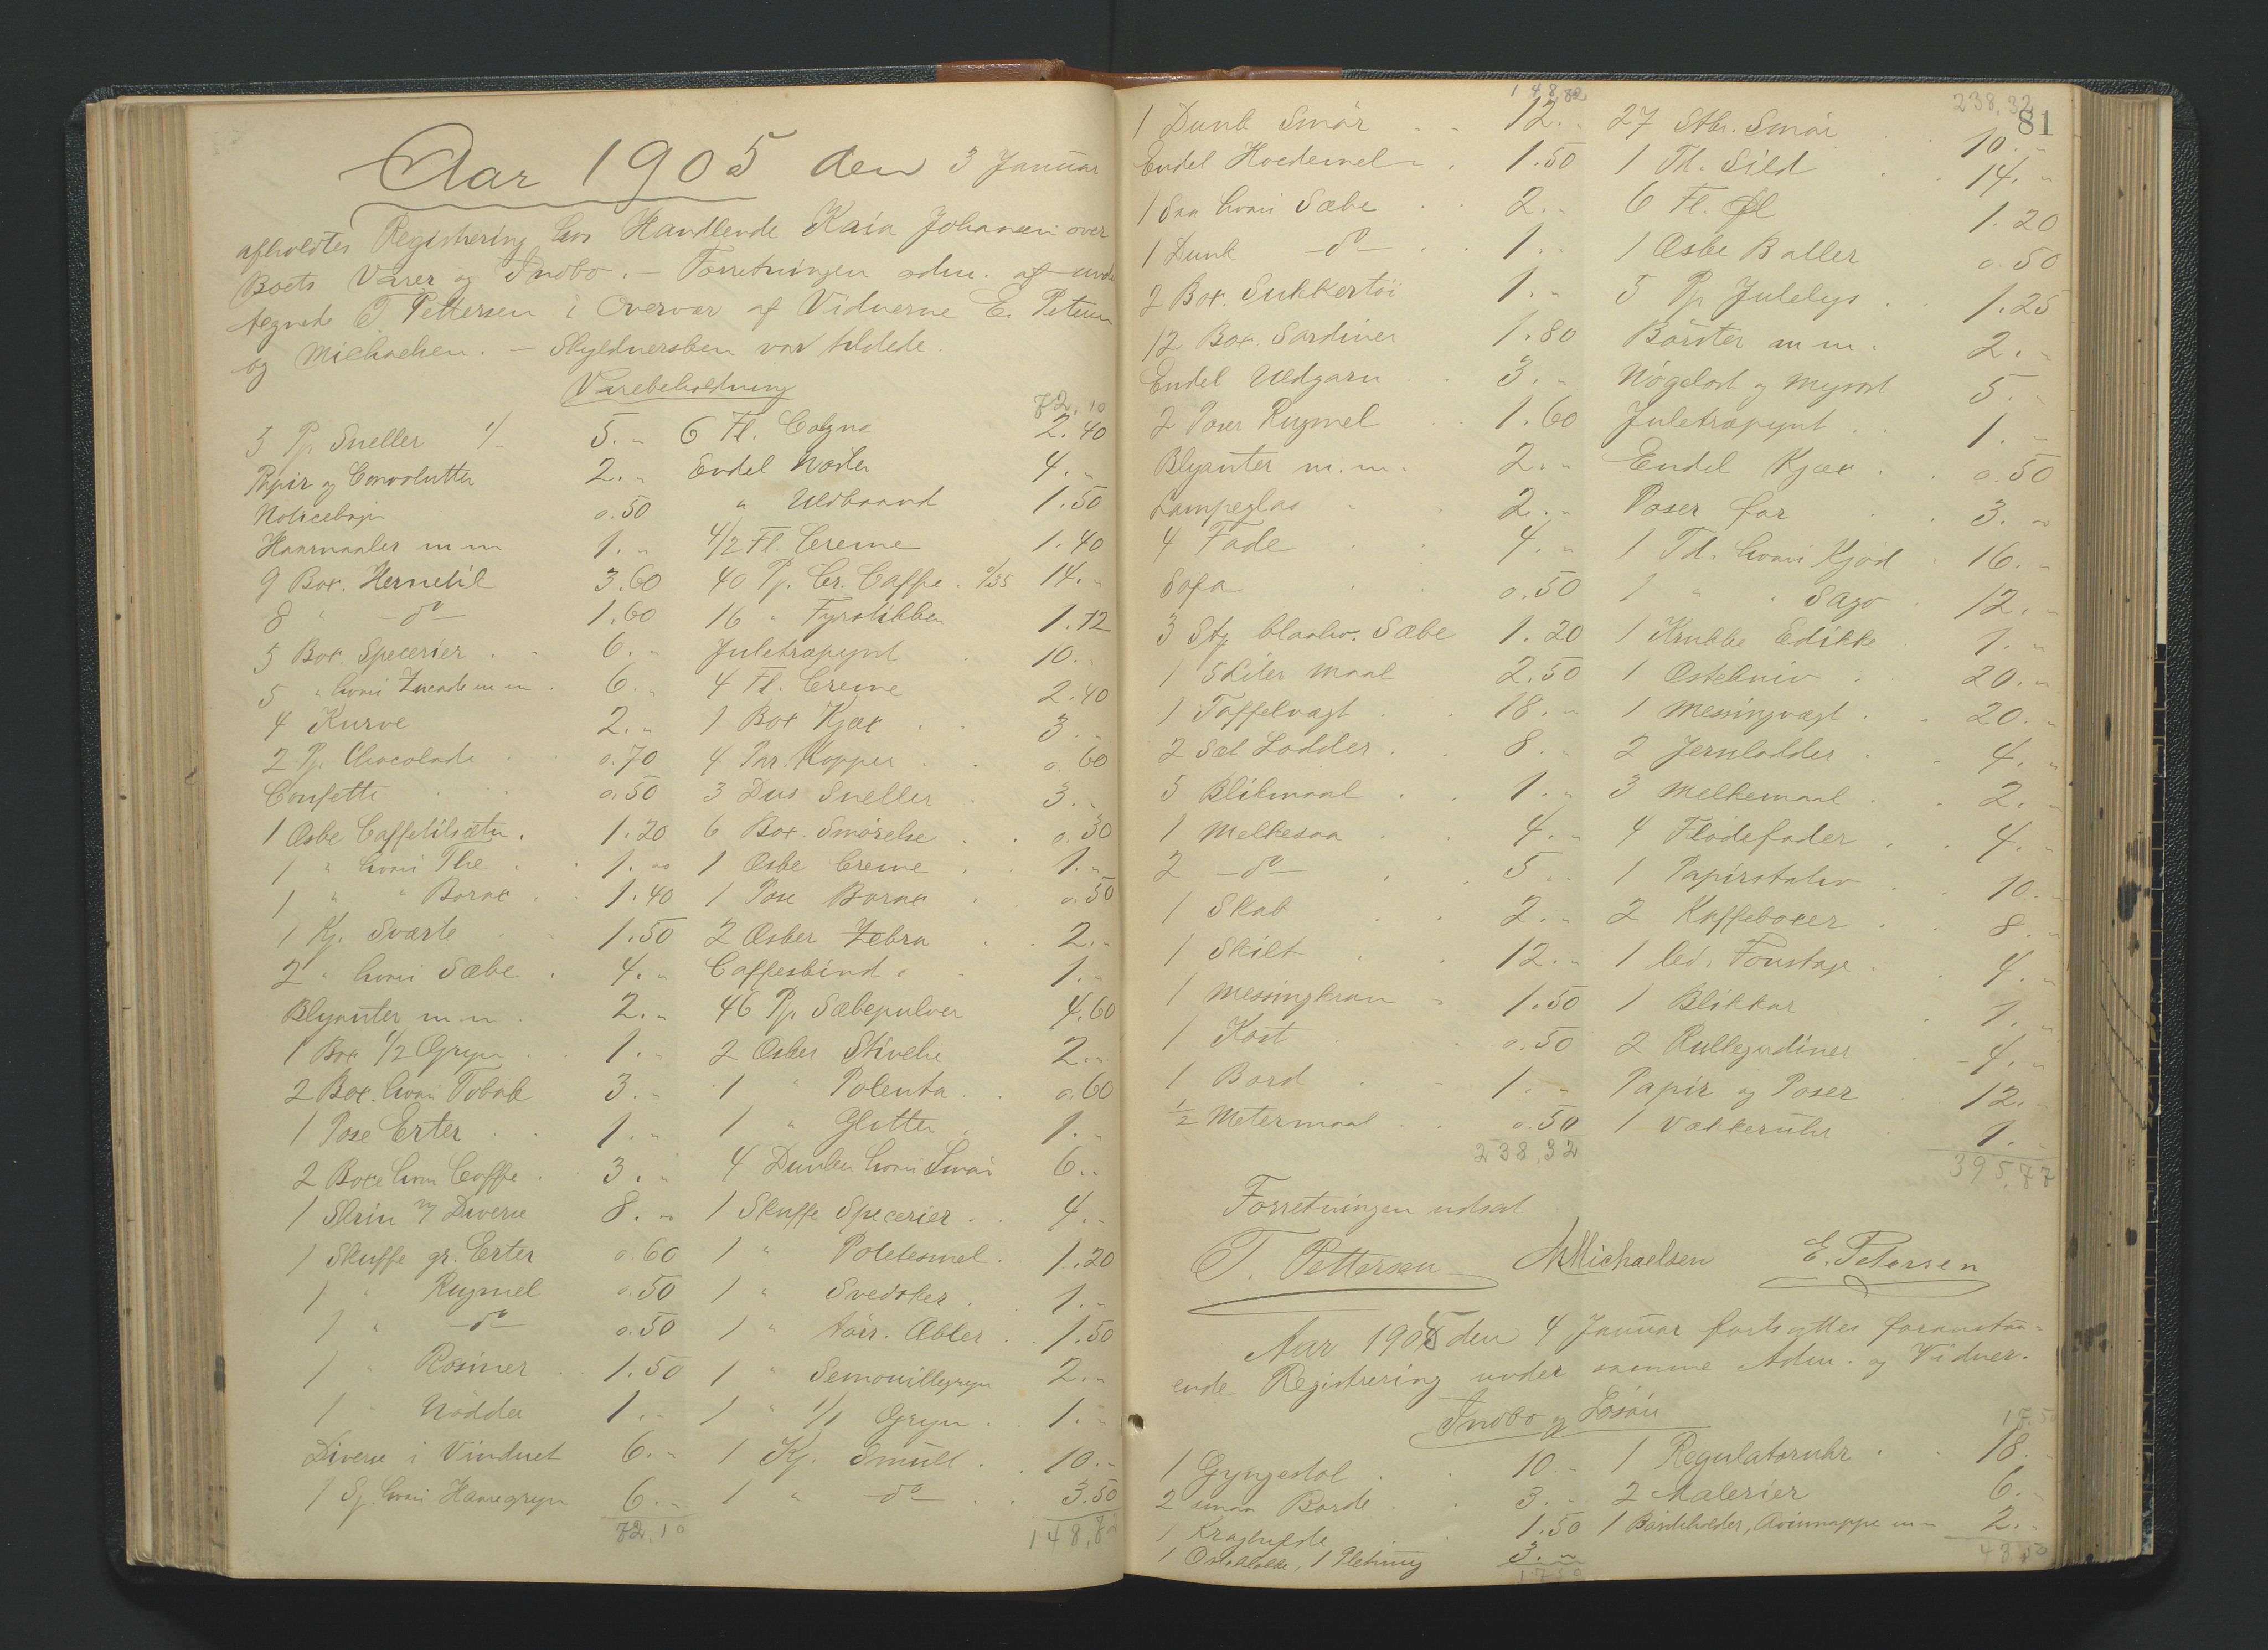 Aar 1905 den 3 Januar
afholdtes Registrering hos Handlende Kaia Johansen over
Boets Varer og Indbo. – Forretningen adm. af under
tegnede T. Pettersen i Overvær af Vidnerne E. Petersen
og Michaelsen. – Skyldnersken var tilstede.
Varebeholdning
5 Pp Sneller 1/- 5. "
Papir og Convolutter 2. "
Noticebøger 0.50
Haarnaaler m m 1. "
9 Box. Hermetik 3.60
8 " – do – 1.60
5 Box. Specerier 6. "
5 " hvori m m 6. "
4 Kurve 2. "
2 Pp Chocolade 0.70
Confetti 0.50
1 Æske Caffetilsætn. 1.20
1 " hvori The 1. "
1 " " Borax 1.40
1 Kj. Sværte 1.50
2 " hvori Sæbe 4. "
Blyanter m m 2. "
1 Box 1/2 Gryn 1. "
2 Box. hvori Tobak 3. "
1 Pose Erter 1. "
2 Boxe hvori Caffe 3. "
1 Skrin m/ Diverse 8. "
1 Skuffe gr. Erter 0.60
1 " Rugmel 0.50
1 " – do – 0.50
1 " Rosiner 1.50
1 " Nødder 1. "
Diverse i Vinduet 6. "
1 hvori Havregryn 6. "
72.10
72.10
6 Fl. 2.40
Endel 4. "
" Uldbaand 1.50
4/2 Fl. Creme 1.40
40 Pp. Cr. Caffe. 0/35 14. "
16 " Fyrstikker 1.12
Juletræpynt 10. "
4 Fl. Creme 2.40
1 Box Kjæx 3. "
4 Par. Kopper 0.60
3 Dus Sneller 3. "
6 Box. Smørelse 0.30
1 Æske Creme 1. "
1 Pose Borax 0.50
2 Æsker Zebra 2. "
Caffesbind 1. "
46 Pp. Sæbepulver 4.60
2 Æsker Stivelse 2. "
1 " Polenta 0.60
1 " Glitter 1. "
4 Dunker hvori Smør 6. "
1 Skuffe Specerier 4. "
1 " Potetesmel 1.20
1 " Svedsker 1. "
1 " tørr. Æbler 1.50
1 " Semouillegryn 2. "
1 " 1/1 Gryn 1. "
1 Kj. Smult 10. "
1 " – do – 3.50
148,82
81
148,82
1 Dunk Smør 12. "
Endel Hvedemel 1.50
1 Saa hvori Sæbe 2. "
1 Dunk – do – 1. "
2 Box. Sukkertøi 1. "
12 Box. Sardiner 1.80
Endel Uldgarn 3. "
2 Poser Rugmel 1.60
Blyanter m. m. 2. "
Lampeglas 2. "
4 Fade 4. "
Sofa 0.50
3 Stg blaahv. Sæbe 1.20
1 5 Liter Maal 2.50
1 Taffelvægt 18. "
2 Sæt Lodder 8. "
5 Blikmaal 1. "
1 Melkesaa 4. "
2 – do – 5. "
1 Skab 2. "
1 Skilt 12. "
1 Messingkran 1.50
1 Kost 0.50
1 Bord 1. "
1/2 Metermaal 0.50
238,32
238,32
27 Stk. Smør 10. "
1 Td. Sild 14. "
6 Fl. Øl 1.20
1 Æske Baller 0.50
5 Pp Julelys 1.25
Børster m m. 2. "
Nøgelost og Mysost 5. "
Juletræpynt 1. "
Endel Kjæx 0.50
Poser for 3. "
1 Td. hvori Kjød 16. "
1 " " Sago 12. "
1 Krukke Edikke 1. "
1 Ostekniv 20. "
1 Messingvægt 20. "
2 Jernlodder 4. "
3 Melkemaal 2. "
4 Flødefader 4. "
1 Papirstativ 10. "
2 Kaffeboxer 8. "
1 led. Foustage 4. "
1 Blikkar 1. "
2 Rullegardiner 4. "
Papir og Poser 12. "
1 Vækkeruhr 1. "
395,77
Forretningen udsat
T. Pettersen M Michaelsen E. Petersen
Aar 1905 den 4 Januar fortsattes foranstaa-
ende Registrering under samme Adm. og Vidner.
Indbo og Løsøre
1 Gyngestol 10. "
2 smaa Borde 3. "
1 Kraghylde 1.50
1 Osteklokke, 1 3. "
17.50
17.50
1 Regulatoruhr 18. "
2 Malerier 6. "
1 Børsteholder, Avismappe m m 2. "
43,50